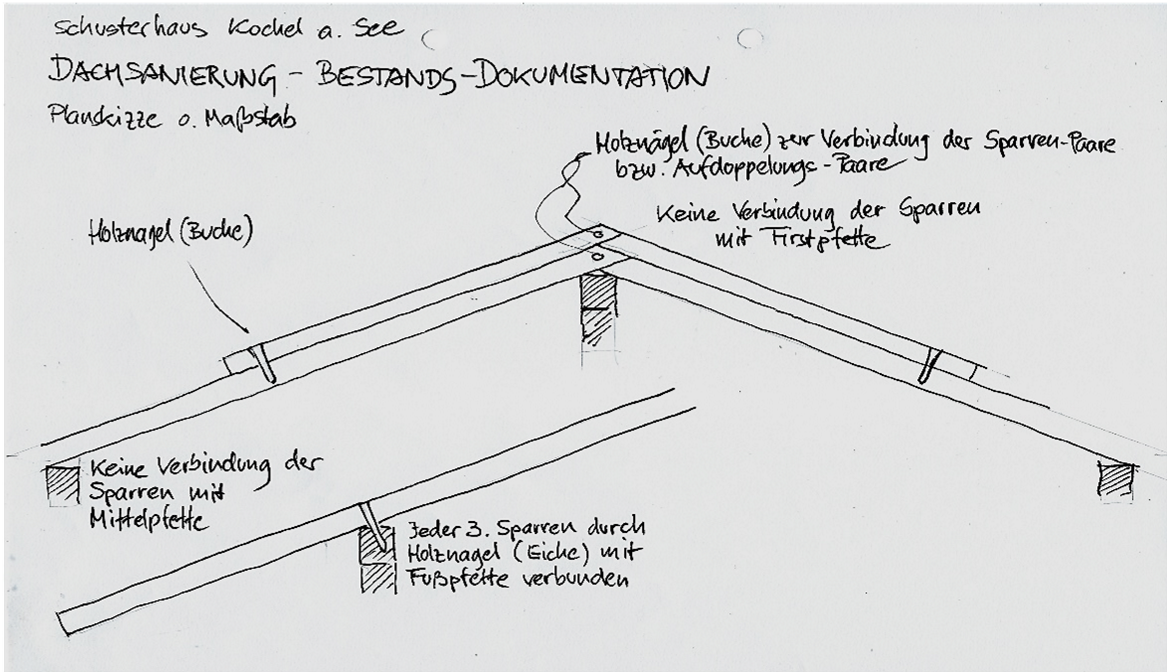 Schusterhaus Kochel a. See
DACHSANIERUNG - BESTANDS-DOKUMENTATION
Planskizze o. Maßstab
Holznägel (Buche) zur Verbindung der Sparren-Paare
bzw. Aufdoppelungs-Paare
Keine Verbindung der Sparren
mit Firstpfette
Holznagel (Buche)
Keine Verbindung der
Sparren mit
Mittelpfette
Jeder 3. Sparren durch
Holznagel (Eiche) mit
Fußpfette verbunden